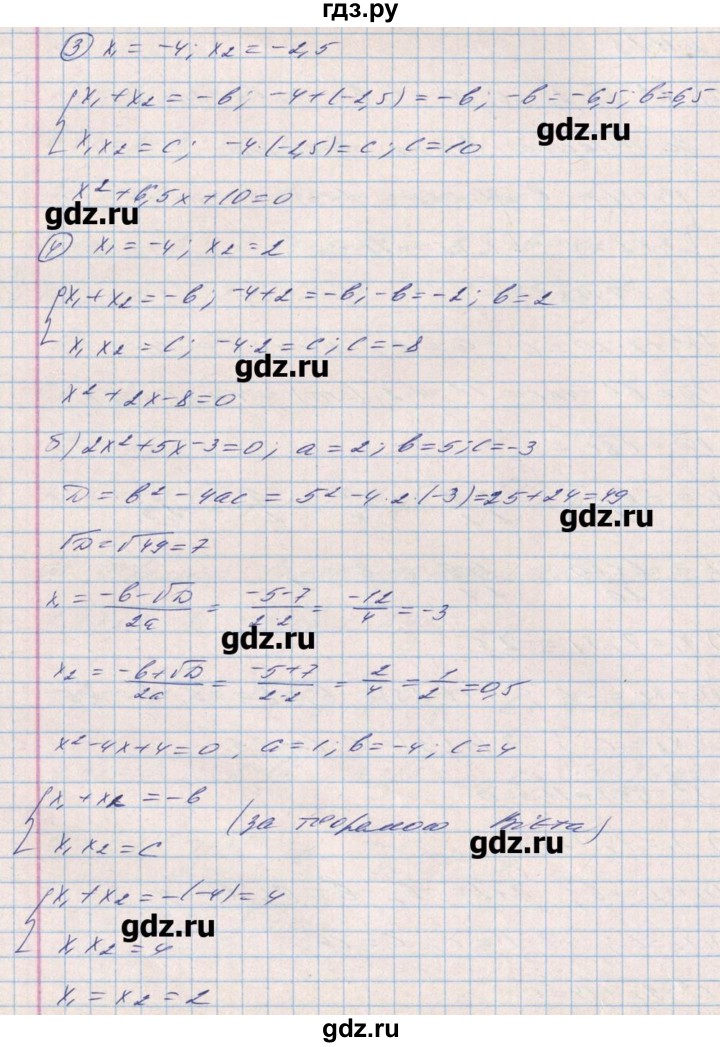 гдз.ру
③ x₁ = -4; x₂ = -2,5
{ x₁ + x₂ = -в; -4+(-2,5) = -в; -в = -6,5; в = 6,5
x₁ x₂ = с; -4·(-2,5) = с; с = 10
gdz.ru
x² + 6,5x + 10 = 0
gdz.ru
④ x₁ = -4; x₂ = 2
{ x₁ + x₂ = -в; -4+2 = -в; -в = -2; в = 2
x₁ x₂ = с; -4·2 = с; с = -8
gdz.ru
x² + 2x - 8 = 0
б) 2x² + 5x - 3 = 0; а = 2; в = 5; с = -3
D = в² - 4ас = 5² - 4·2·(-3) = 25 + 24 = 49
gdz.ru
√D = √49 = 7
x₁ = (-в - √D)/(2а) = (-5-7)/(2·2) = -12/4 = -3
gdz.ru
x₂ = (-в + √D)/(2а) = (-5+7)/(2·2) = 2/4 = 1/2 = 0,5
x² - 4x + 4 = 0, а = 1; в = -4; с = 4
{ x₁ + x₂ = -в
x₁ x₂ = с (за теоремою Вієта)
gdz.ru
{ x₁ + x₂ = -(-4) = 4
gdz.ru
x₁ x₂ = 4
x₁ = x₂ = 2
gdz.ru